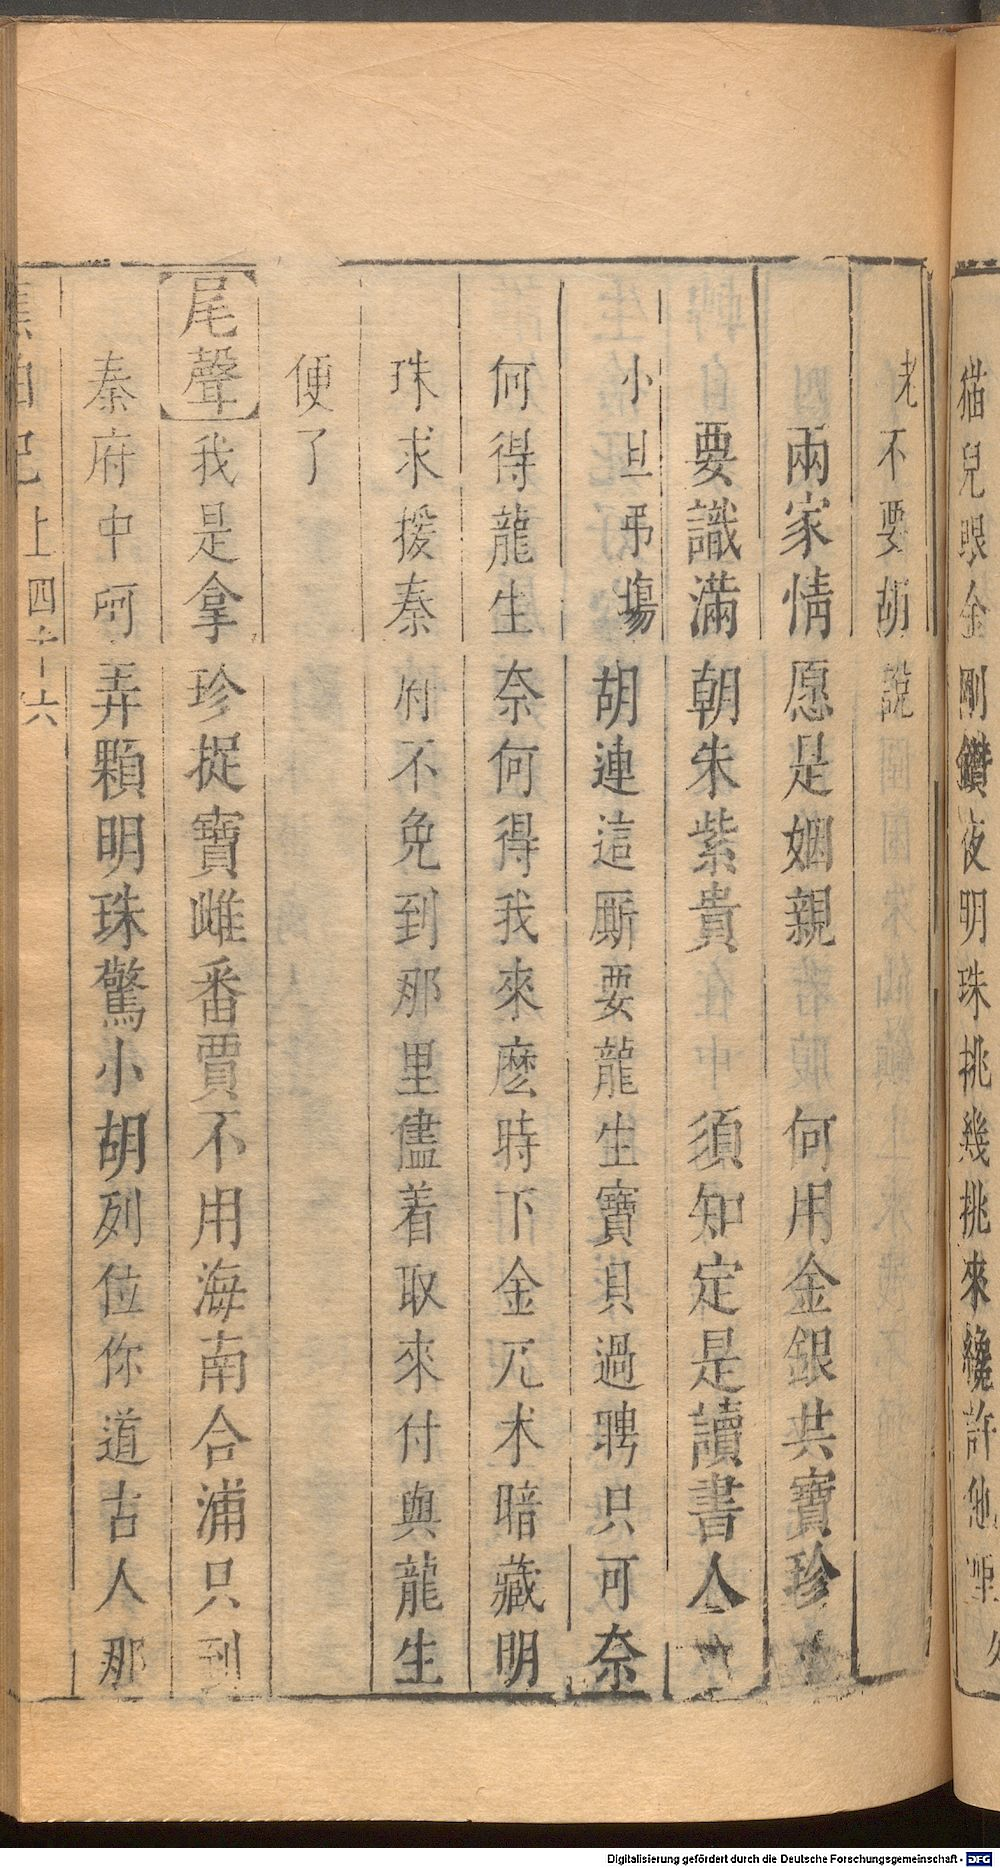 猫兒眼金剛鑽夜明珠挑幾挑來纔許他
老不要胡說
兩家情愿是姻親　何用金銀共寶珍
要識滿朝朱紫貴　須知定是讀書人
小旦弔場胡連這厮要龍生寶貝過聘只可奈
何得龍生奈何得我來麽時下金兀术暗藏明
珠求援秦府不免到那里儘着取來付與龍生
便了
尾聲我是拿珍捉寶雌番賈不用海南合浦只到
秦府中呵弄顆明珠驚小胡列位你道古人那
上四十六
Digitalisierung gefördert durch die Deutsche Forschungsgemeinschaft - DFG